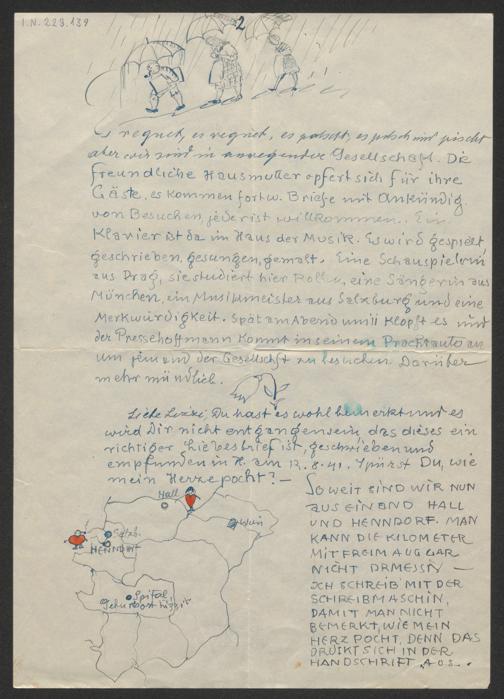 I.N. 229.139
2
Es regnet, es regnet, es patscht, es patscht und pischt
aber wir sind in anregender Gesellschaft. Die
freundliche Hausmutter opfert sich für ihre
Gäste, es kommen fortw. Briefe mit Ankündig.
von Besuchen, jeder ist willkommen. Ein
Klavier ist da im Haus der Musik. Es wird gespielt
geschrieben, gesungen, gemalt. Eine Schauspielerin
aus Prag, sie studiert hier Rollen, eine Sängerin aus
München, ein Musikmeister aus Salzburg und eine
Merkwürdigkeit. Spät am Abend um 11 klopft es und
der Pressehoffmann kommt in seinem Prachtauto an
um jemand der Gesellschft zu besuchen. Darüber
mehr mündlich.
Liebe Du hast es wohl bemerkt und es
wird Dir nicht entgangen sein, das dieses ein
richtiger Liebesbrief ist, geschrieben und
empfunden in H. am 12.8.41. Spürst Du, wie
mein Herze pocht? —
Hall
Wien
Salzb.
HENNDORF
Spital
Geburtsort
SOWEIT SIND WIR NUN
AUSEINAND HALL
UND HENNDORF. MAN
KANN DIE KILOMETER
MIT FREIM AUG GAR
NICHT DRMESSN —
ICH SCHREIB MIT DER
SCHREIBMASCHIN,
DAMIT MAN NICHT
BEMERKT, WIE MEIN
HERZ POCHT, DENN DAS
DRÜKT SICH IN DER
HANDSCHRIFT AUS.